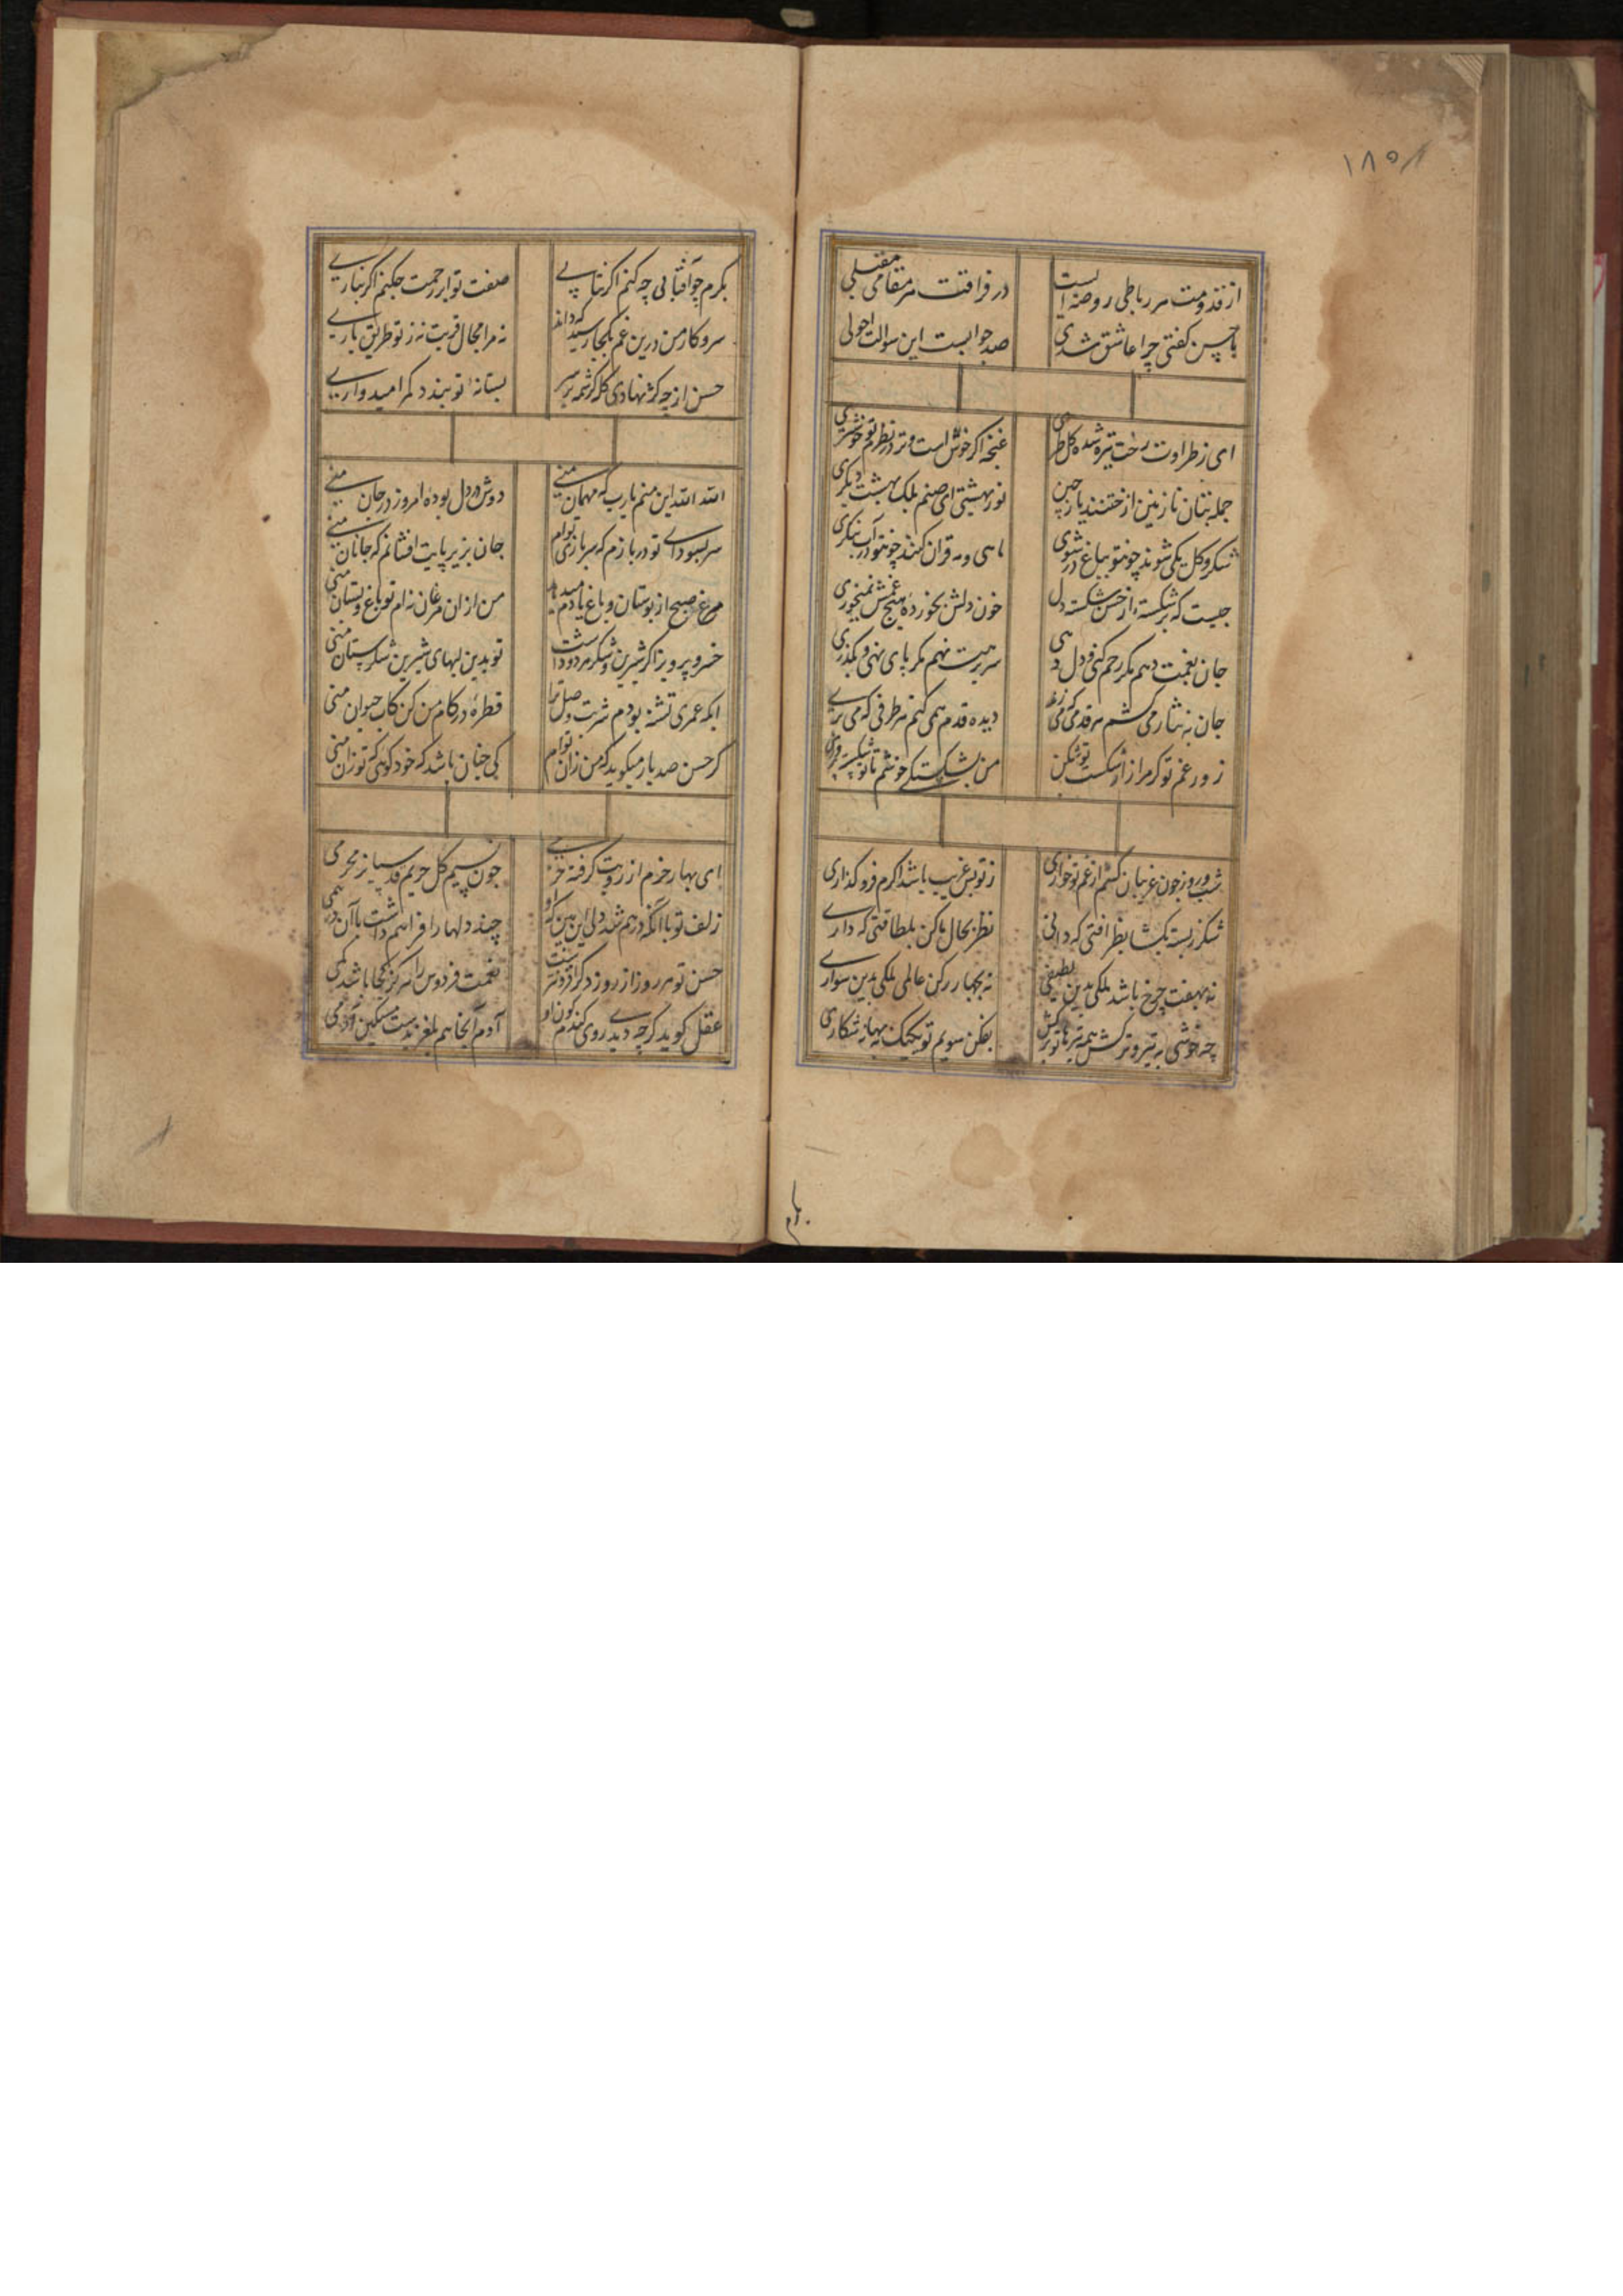 ۱۸۵
از قدومت هر رباطی روضه است در فراقت هر مقامی مقتلی
با حسن گفتی چرا عاشق شدی صد جوابست این سوالت اجولی
ای ز طراوت رخت تیره شده گل طری غنچه اگر خوش است و تر در نظرم تو خوشتری
جمله بتان نازنین از ختنند یا ز چین تو ز بهشتی ای صنم بلک بهشت دیگری
شکر و گل یکی شوند چو تو بباغ در شوی ماهی و مه قران کنند چو تو در آب بنگری
چیست که بر شکسته از حسن شکسته دل خون دلش بخورده هیچ غمش نمیخوری
جان بغمت دهم مگر رحم کنی و دل دهی سر برهت نهم مگر پای نهی و بگذری
جان به نثار می کشم هر قدمی که می زنی دیده قدم همی کنم هر طرفی که می پری
زور غم تو گر مرا از شکست تو شکن من بشکستگی خوشم تا تو شکسته پروری
شب و روز چون غریبان کشم از غم تو خواری ز تو بس غریب باشد اگرم فرو گذاری
شکر ز بسته بگشا بظرافتی که دانی نظر بحال ما کن بلطافتی که داری
نه بهفت چرخ باشد ملکی بدین لطیفی نه بچهار رکن عالم ملکی بدین سواری
چه خوشی به تیر و ترکش همه تیرها تو برکش بفکن سویم تو یک یک به بهانه شکاری
بکرم چو آفتابی چه کنم اگر نتابی صفت تو ابر رحمت چکنم اگر نباری
سر و کار من درین غم بکجا رسید که داند نه مرا مجال قربت نه ز تو طریق یاری
حسن از چه کژ نهادی کله کرشمه بر سر بستانه تو بندد کمر امیدواری
الله الله این منم یا رب که مهمان منی دوش در دل بوده امروز در جان منی
سر بسودای تو دربازم که سربازی توام جان بزیر پایت افشانم که جانان منی
مرغ صبح از بوستان و باغ یادم میدهد من ازان مرغان نه ام تو باغ و بستان منی
خسرو پرویز اگر شیرین و شکر هر دو داشت تو بدین لبهای شیرین شکرستان منی
ای که عمری تشنه بودم شربت وصل ترا قطره در کام من کن کاب حیوان منی
گر حسن صد بار میگوید که من زان توام کی چنان باشد که خود گوئی که تو زان منی
ای بهار خرم از رویت گرفته خرمی چون نسیم گل حریم قدسیان را محرمی
زلف تو با آنکه درهم شد ولی این بین که او چند دلها را فراهم داشت با آن درهمی
حسن تو هر روز از روز دگر افزونترست نعمت فردوس را هرگز کجا باشد کمی
عقل گوید گرچه دیدی روی گندم گون او آدم آنجا هم بلغزیدست مسکین آدمی